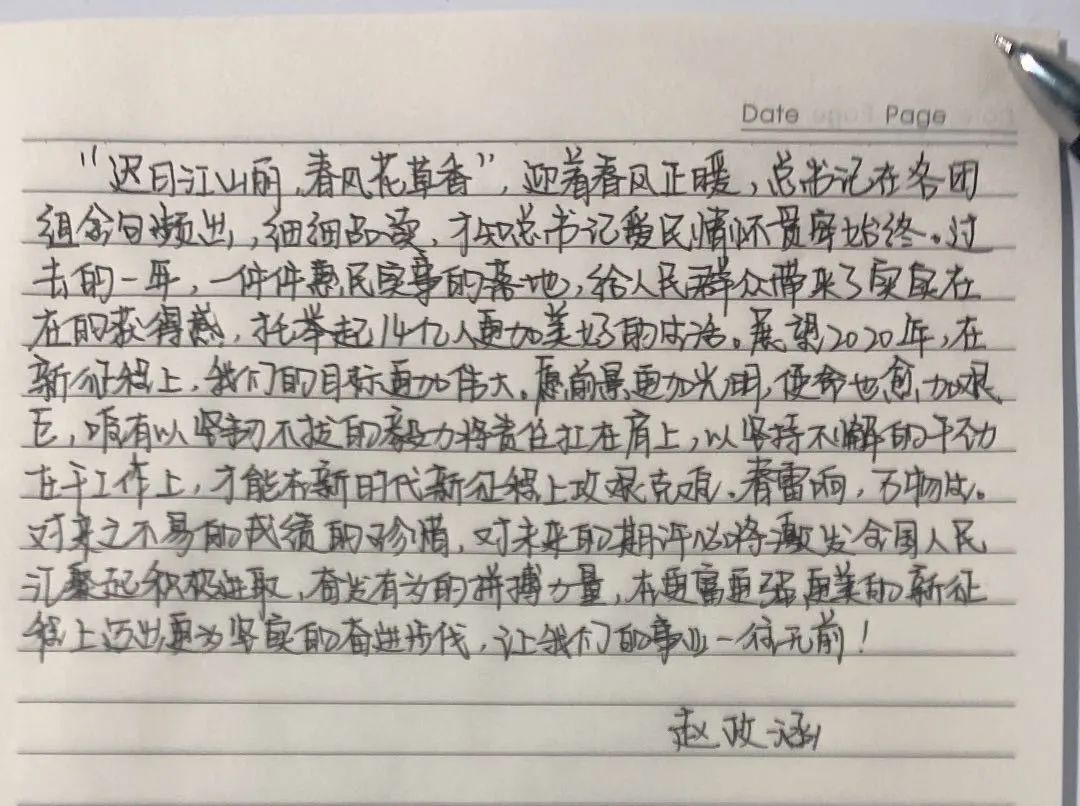 Date Page
“迟日江山丽，春风花草香”，迎着春风正暖，总书记在各团
组金句频出，细细品读，才知总书记爱民情怀贯穿始终。过
去的一年，一件件惠民实事的落地，给人民群众带来了实实在
在的获得感，托举起14亿人更加美好的生活。展望2020年，在
新征程上，我们的目标更加伟大。愿前景更加光明，使命也愈加艰
巨，唯有以坚韧不拔的毅力将责任扛在肩上，以坚持不懈的干劲
在干工作上，才能在新时代新征程上攻艰克难。春雷响，万物生。
对来之不易的成绩的珍惜，对未来的期许必将激发全国人民
汇聚起积极进取、奋发有为的拼搏力量，在更富更强更美的新征
程上迈出更为坚实的奋进步伐，让我们的事业一往无前！
赵政涵